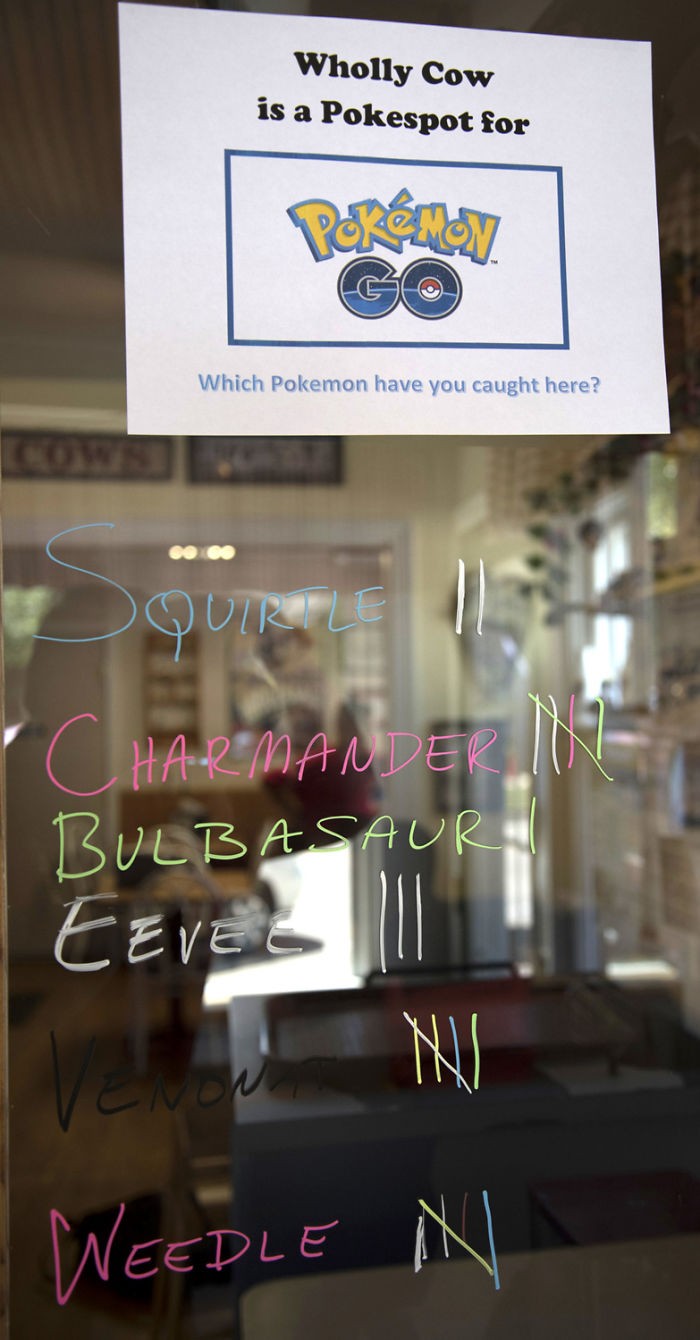 Wholly Cow
is a Pokespot for
POKéMON™
GO
Which Pokemon have you caught here?
COWS
SQUIRTLE II
CHARMANDER
BULBASAUR I
EEVEE III
VENONAT
WEEDLE